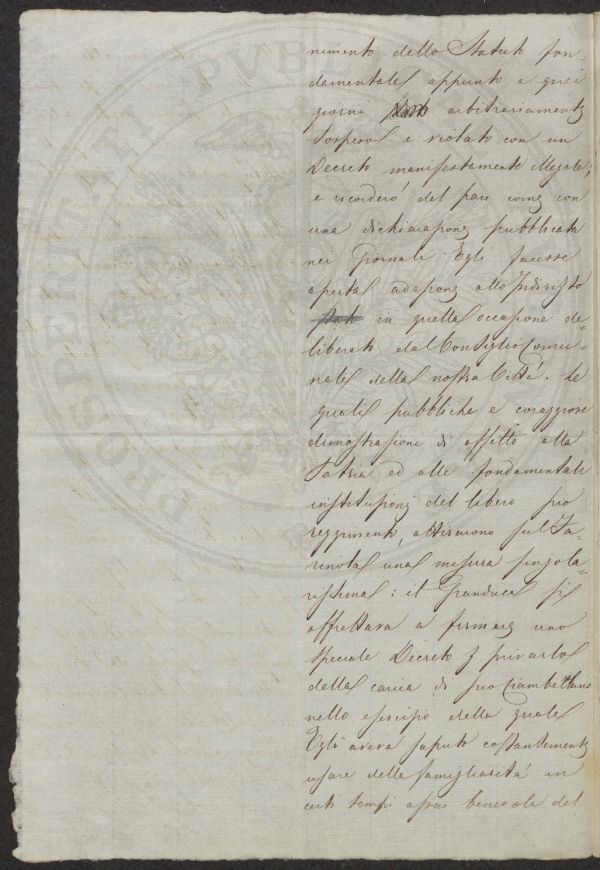 nimento dello Statuto fon
damentale appunto a quei
giorni arbitrariamente
sospeso e violato con un
Decreto manifestamente illegale;
e ricorderò del pari come con
una dichiarazione pubblicata
nei Giornali Egli facesse
aperta adesione allo Indirizzo
in quella occasione de-
liberato dal Consiglio Comu-
nale della nostra Città. Le
quali pubbliche e coraggiose
dimostrazioni di affetto alla
Patria ed alle fondamentali
instituzioni del libero suo
reggimento, attirarono sul Fa-
rinola una misura singola-
rissima: il Granduca si
affrettava a firmare uno
speciale Decreto p privarlo
della carica di suo Ciambellano
nello esercizio della quale
Egli aveva saputo costantemente
usare della famigliarità in
certi tempi assai benevola del
PROSPERITATI PUB